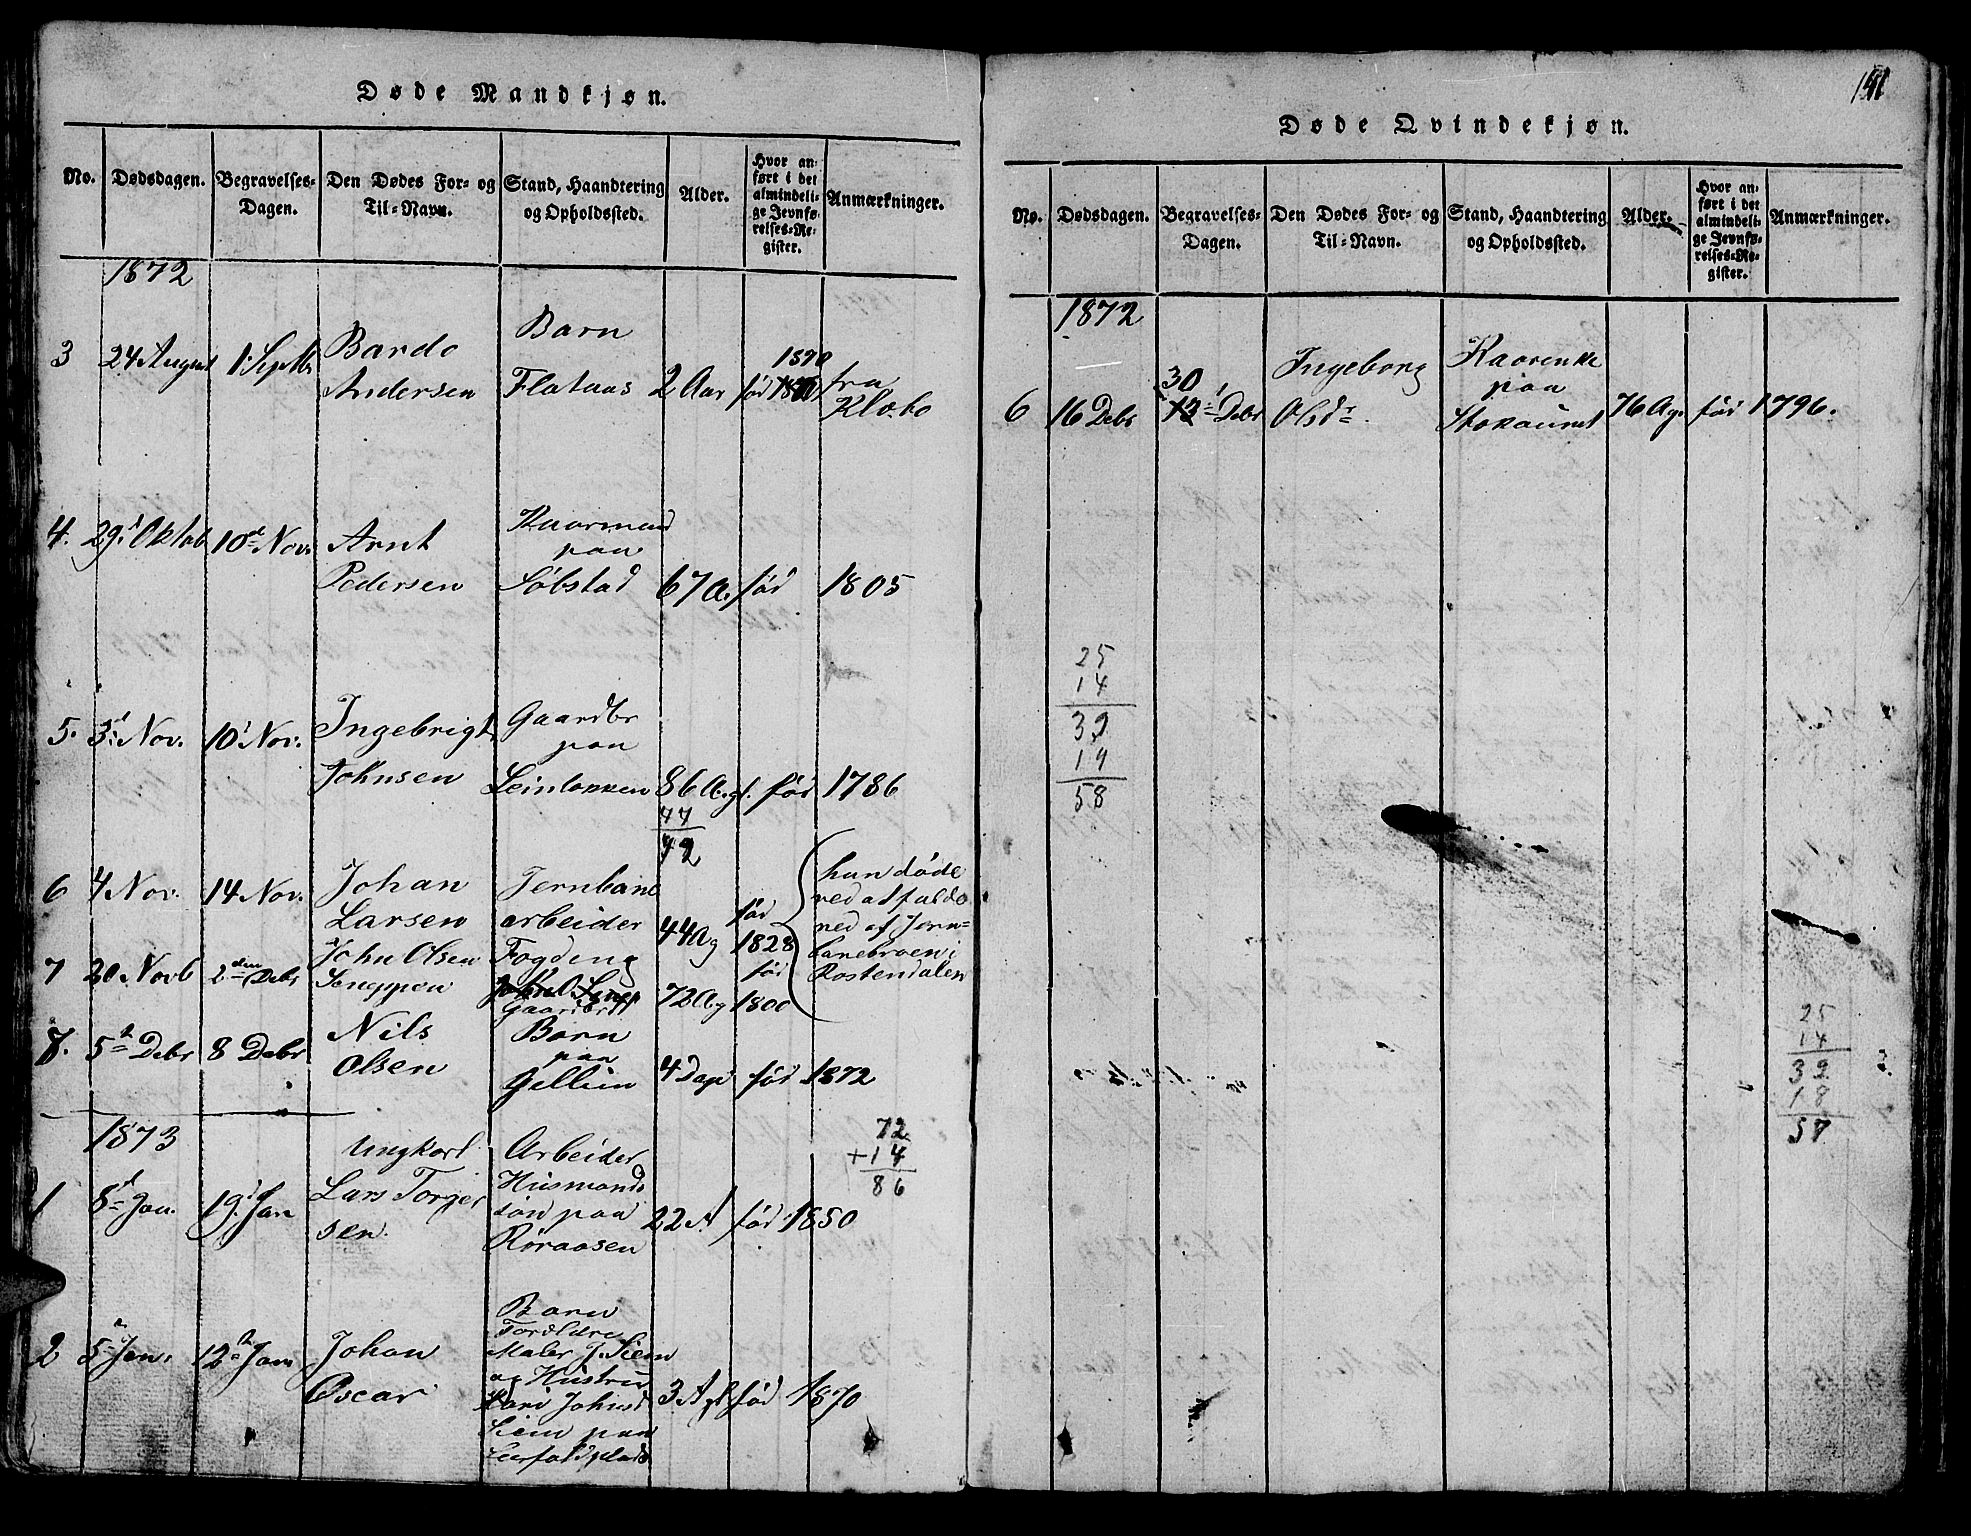 Døde Mandkjøn.
No. Dødsdagen. Begravelses-Dagen. Den Dødes For- og Til-Navn. Stand, Haandtering og Opholdssted. Alder. Hvor anført i det almindelige Jevnførelses-Register. Anmærkninger.
1872
3 24 August 1. Septbr Bardo Andersen Barn Flataas 2 Aar fød 1870 fra Klæbo
4. 29. Oktob 10d Nov. Arnt Pedersen Kaarmand paa Søbstad 67 A. fød 1805
5. 3d Nov. 10d Nov. Ingebrigt Johnsen Gaardbr paa Leinlokken 86 A. gl. fød 1786
77
72
6 4 Nov. 14 Nov. Johan Larsen Jernbane arbeider 44 A g fød 1828 han døde ved at falde ned af Jernbanebroen i Rostendalen
7 20 Novb 2den Debr John Olsen Fogdeng Gaardbr 72 A. g fød 1800
7. 5t Debr 8 Debr Nils Olsen Barn paa 4 Dage fød 1872
1873
1 8d Jan. 19d Jan Ungkarl Lars Torgersen Arbeider Husmands søn paa Røraasen 22 A fød 1850
72
+14
86
2 5 Jan. 12 Jan Johan Oscar Barn Forældre Maler J. Siem og Hustru Johnsd Siem paa 3 A gl fød 1870
141
Døde Qvindekjøn.
No. Dødsdagen. Begravelses-Dagen. Den Dødes For- og Til-Navn. Stand, Haandtering og Opholdssted. Alder. Hvor anført i det almindelige Jevnførelses-Register. Anmærkninger.
1872
6 16 Debr 30 Debr Ingeborg Olsdr. Kaarenke paa Stokaunet 76 A g. fød 1796.
25
14
39
19
58
25
14
39
18
57